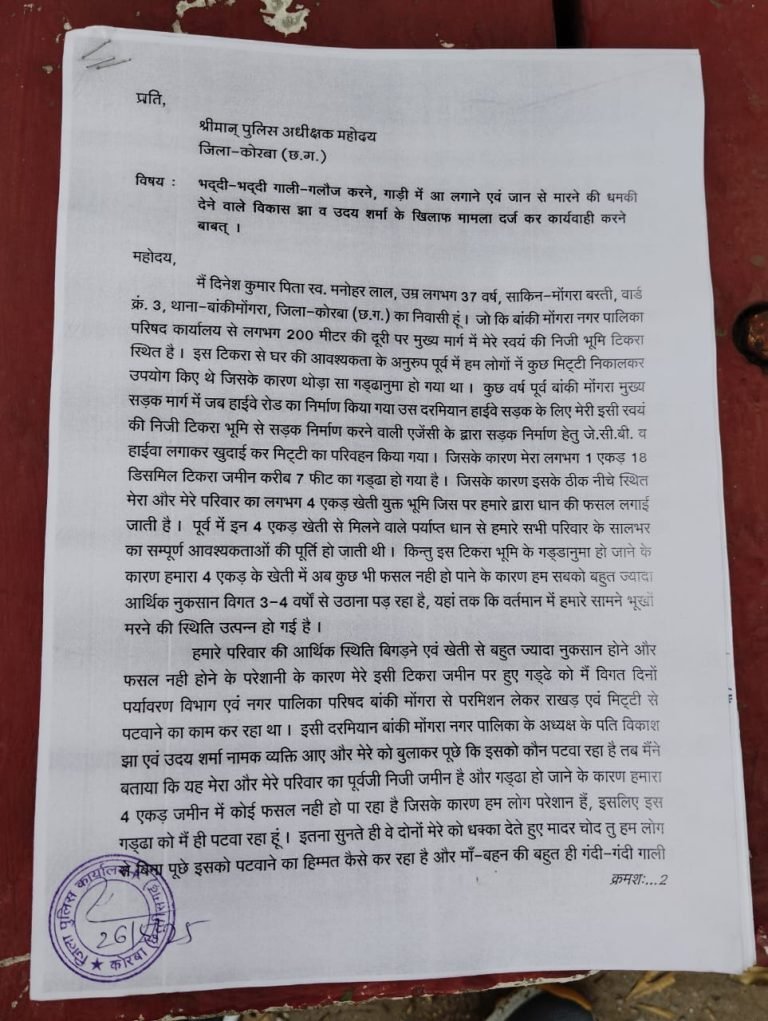 प्रति,
श्रीमान् पुलिस अधीक्षक महोदय
जिला–कोरबा (छ.ग.)
विषय : भद्दी–भद्दी गाली–गलौज करने, गाड़ी में आ लगाने एवं जान से मारने की धमकी
देने वाले विकास झा व उदय शर्मा के खिलाफ मामला दर्ज कर कार्यवाही करने
बाबत् ।
महोदय,
मैं दिनेश कुमार पिता स्व. मनोहर लाल, उम्र लगभग 37 वर्ष, साकिन–मोंगरा बस्ती, वार्ड
क्रं. 3, थाना–बांकीमोंगरा, जिला–कोरबा (छ.ग.) का निवासी हूं । जो कि बांकी मोंगरा नगर पालिका
परिषद कार्यालय से लगभग 200 मीटर की दूरी पर मुख्य मार्ग में मेरे स्वयं की निजी भूमि टिकरा
स्थित है । इस टिकरा से घर की आवश्यकता के अनुरुप पूर्व में हम लोगों नें कुछ मिट्टी निकालकर
उपयोग किए थे जिसके कारण थोड़ा सा गड्ढानुमा हो गया था । कुछ वर्ष पूर्व बांकी मोंगरा मुख्य
सड़क मार्ग में जब हाईवे रोड का निर्माण किया गया उस दरमियान हाईवे सड़क के लिए मेरी इसी स्वयं
की निजी टिकरा भूमि से सड़क निर्माण करने वाली एजेंसी के द्वारा सड़क निर्माण हेतु जे.सी.बी. व
हाईवा लगाकर खुदाई कर मिट्टी का परिवहन किया गया । जिसके कारण मेरा लगभग 1 एकड़ 18
डिसमिल टिकरा जमीन करीब 7 फीट का गड्ढा हो गया है । जिसके कारण इसके ठीक नीचे स्थित
मेरा और मेरे परिवार का लगभग 4 एकड़ खेती युक्त भूमि जिस पर हमारे द्वारा धान की फसल लगाई
जाती है । पूर्व में इन 4 एकड़ खेती से मिलने वाले पर्याप्त धान से हमारे सभी परिवार के सालभर
का सम्पूर्ण आवश्यकताओं की पूर्ति हो जाती थी । किन्तु इस टिकरा भूमि के गड्डानुमा हो जाने के
कारण हमारा 4 एकड़ के खेती में अब कुछ भी फसल नही हो पाने के कारण हम सबको बहुत ज्यादा
आर्थिक नुकसान विगत 3–4 वर्षो से उठाना पड़ रहा है, यहां तक कि वर्तमान में हमारे सामने भूखों
मरने की स्थिति उत्पन्न हो गई है ।
हमारे परिवार की आर्थिक स्थिति बिगड़ने एवं खेती से बहुत ज्यादा नुकसान होने और
फसल नही होने के परेशानी के कारण मेरे इसी टिकरा जमीन पर हुए गड्ढे को मैं विगत दिनों
पर्यावरण विभाग एवं नगर पालिका परिषद बांकी मोंगरा से परमिशन लेकर राखड़ एवं मिट्टी से
पटवाने का काम कर रहा था । इसी दरमियान बांकी मोंगरा नगर पालिका के अध्यक्ष के पति विकाश
झा एवं उदय शर्मा नामक व्यक्ति आए और मेरे को बुलाकर पूछे कि इसको कौन पटवा रहा है तब मैंने
बताया कि यह मेरा और मेरे परिवार का पूर्वजी निजी जमीन है और गड्ढा हो जाने के कारण हमारा
4 एकड़ जमीन में कोई फसल नही हो पा रहा है जिसके कारण हम लोग परेशान हैं, इसलिए इस
गड्ढा को मैं ही पटवा रहा हूं । इतना सुनते ही वे दोनों मेरे को धक्का देते हुए मादर चोद तु हम लोग
से बिना पूछे इसको पटवाने का हिम्मत कैसे कर रहा है और माँ–बहन की बहुत ही गंदी–गंदी गाली
क्रमशः...2
जिला पुलिस कार्यालय
कोरबा (छत्तीसगढ़)